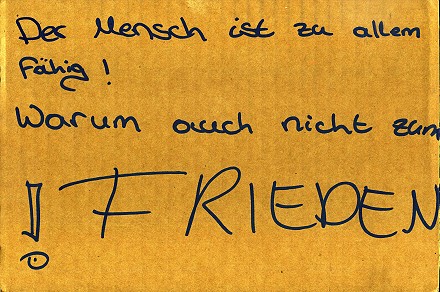 Der Mensch ist zu allem
Fähig!
Warum auch nicht zum
! FRIEDEN